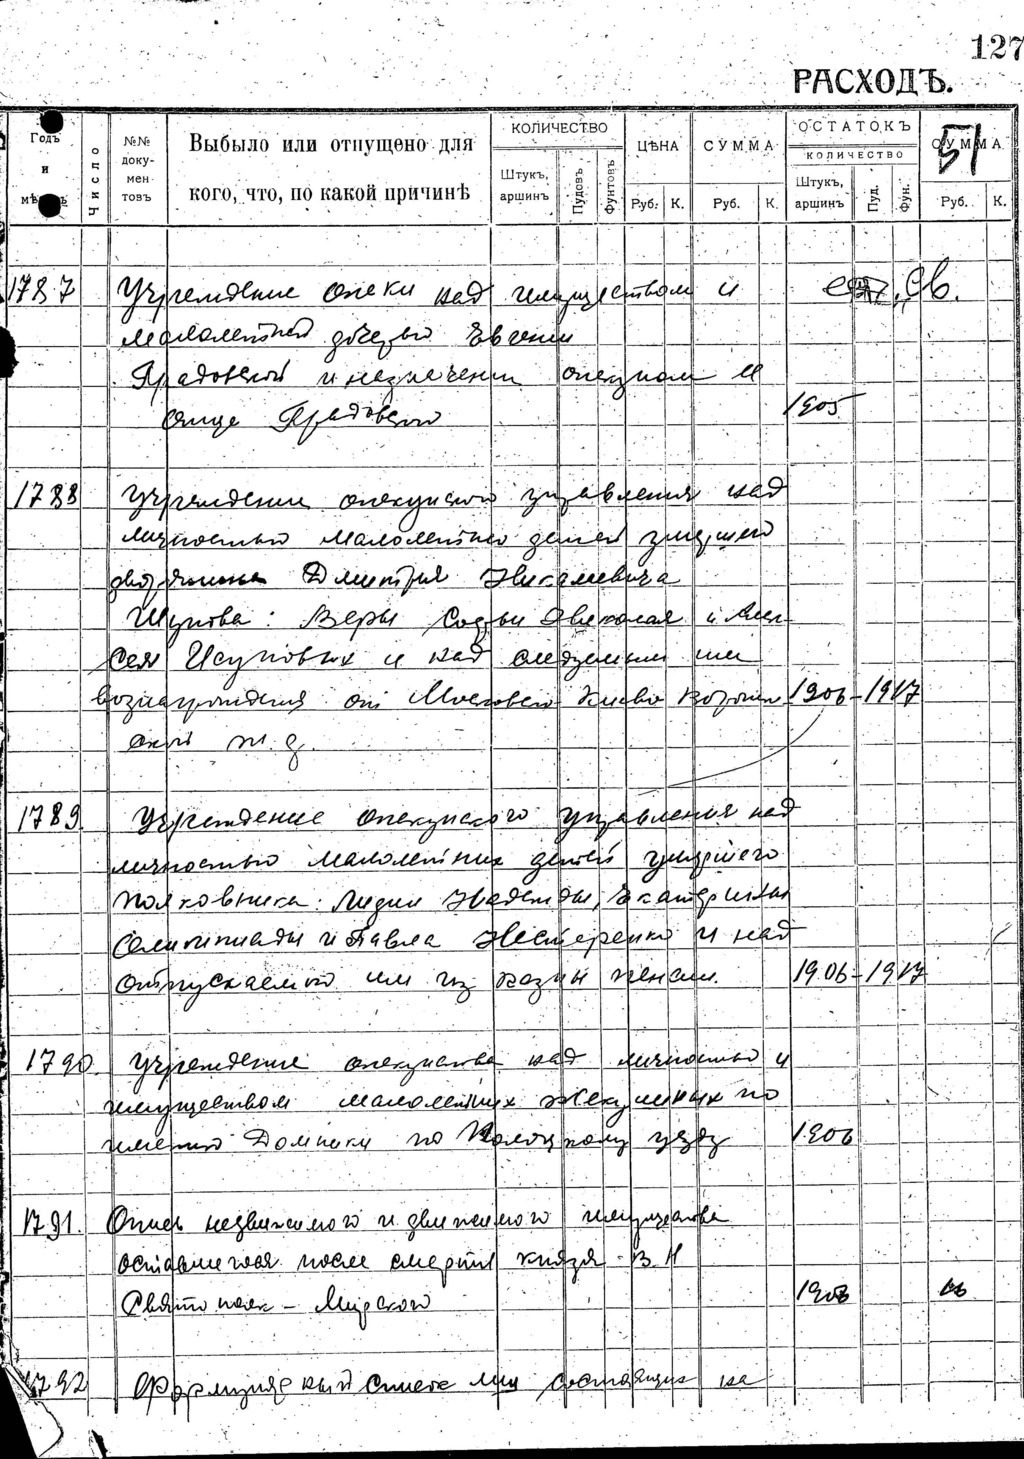 127
РАСХОДЪ.
Годъ и мѣ
Число
№№ доку- мен- товъ
Выбыло или отпущено для
кого, что, по какой причинѣ
КОЛИЧЕСТВО
Штукъ, аршинъ
Пудовъ
Фунтовъ
ЦѢНА
Руб. К.
СУММА
Руб. К.
ОСТАТОКЪ
КОЛИЧЕСТВО
Штукъ, аршинъ
Пуд.
Фун.
СУММА
Руб. К.
51
1787 Учреждение опеки над имуществом и св.
малолетней дочерью Евгении
и назначении опекуном
1905
1788 Учреждении опекунского управления над
личностью малолетних детей умершего
дворянина Дмитрия Николаевича
Веры Софьи Николая и Алек-
сея Исуповых и над следуемым им
вознаграждения от Московско Киево Вороне 1906-1917
ской ж. д.
1789 Учреждение опекунского управления над
личностью малолетних детей умершего
полковника: Лидии Надежды, Екатерины
Олимпиады и Павла Нестеренко и над
отпускаемой им из казны пенсии. 1906-1917
1790. Учреждение опекунства над личностью и
имуществом малолетних по
имению Домники по Полоцкому уезду 1906
1791. Опись недвижимого и движимого имущества
оставшегося после смерти князя В Н
Святополк-Мирского 1906
1792 список лиц состоящих на